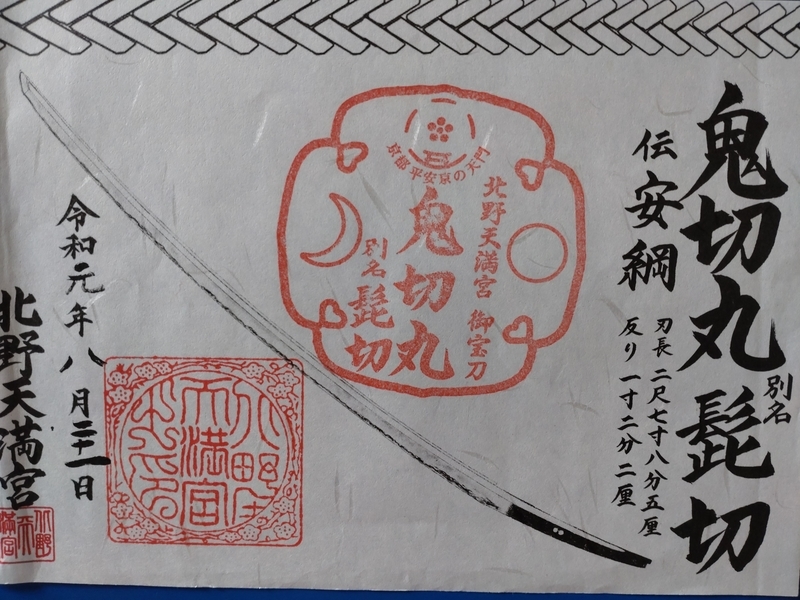 鬼切丸 別名 髭切
伝 安綱
刃長 二尺七寸八分五厘
反り 一寸二分二厘
京都平安京の天門
北野天満宮 御宝刀
鬼切丸
別名 髭切
令和元年八月二十一日
北野天満宮
北野天満宮